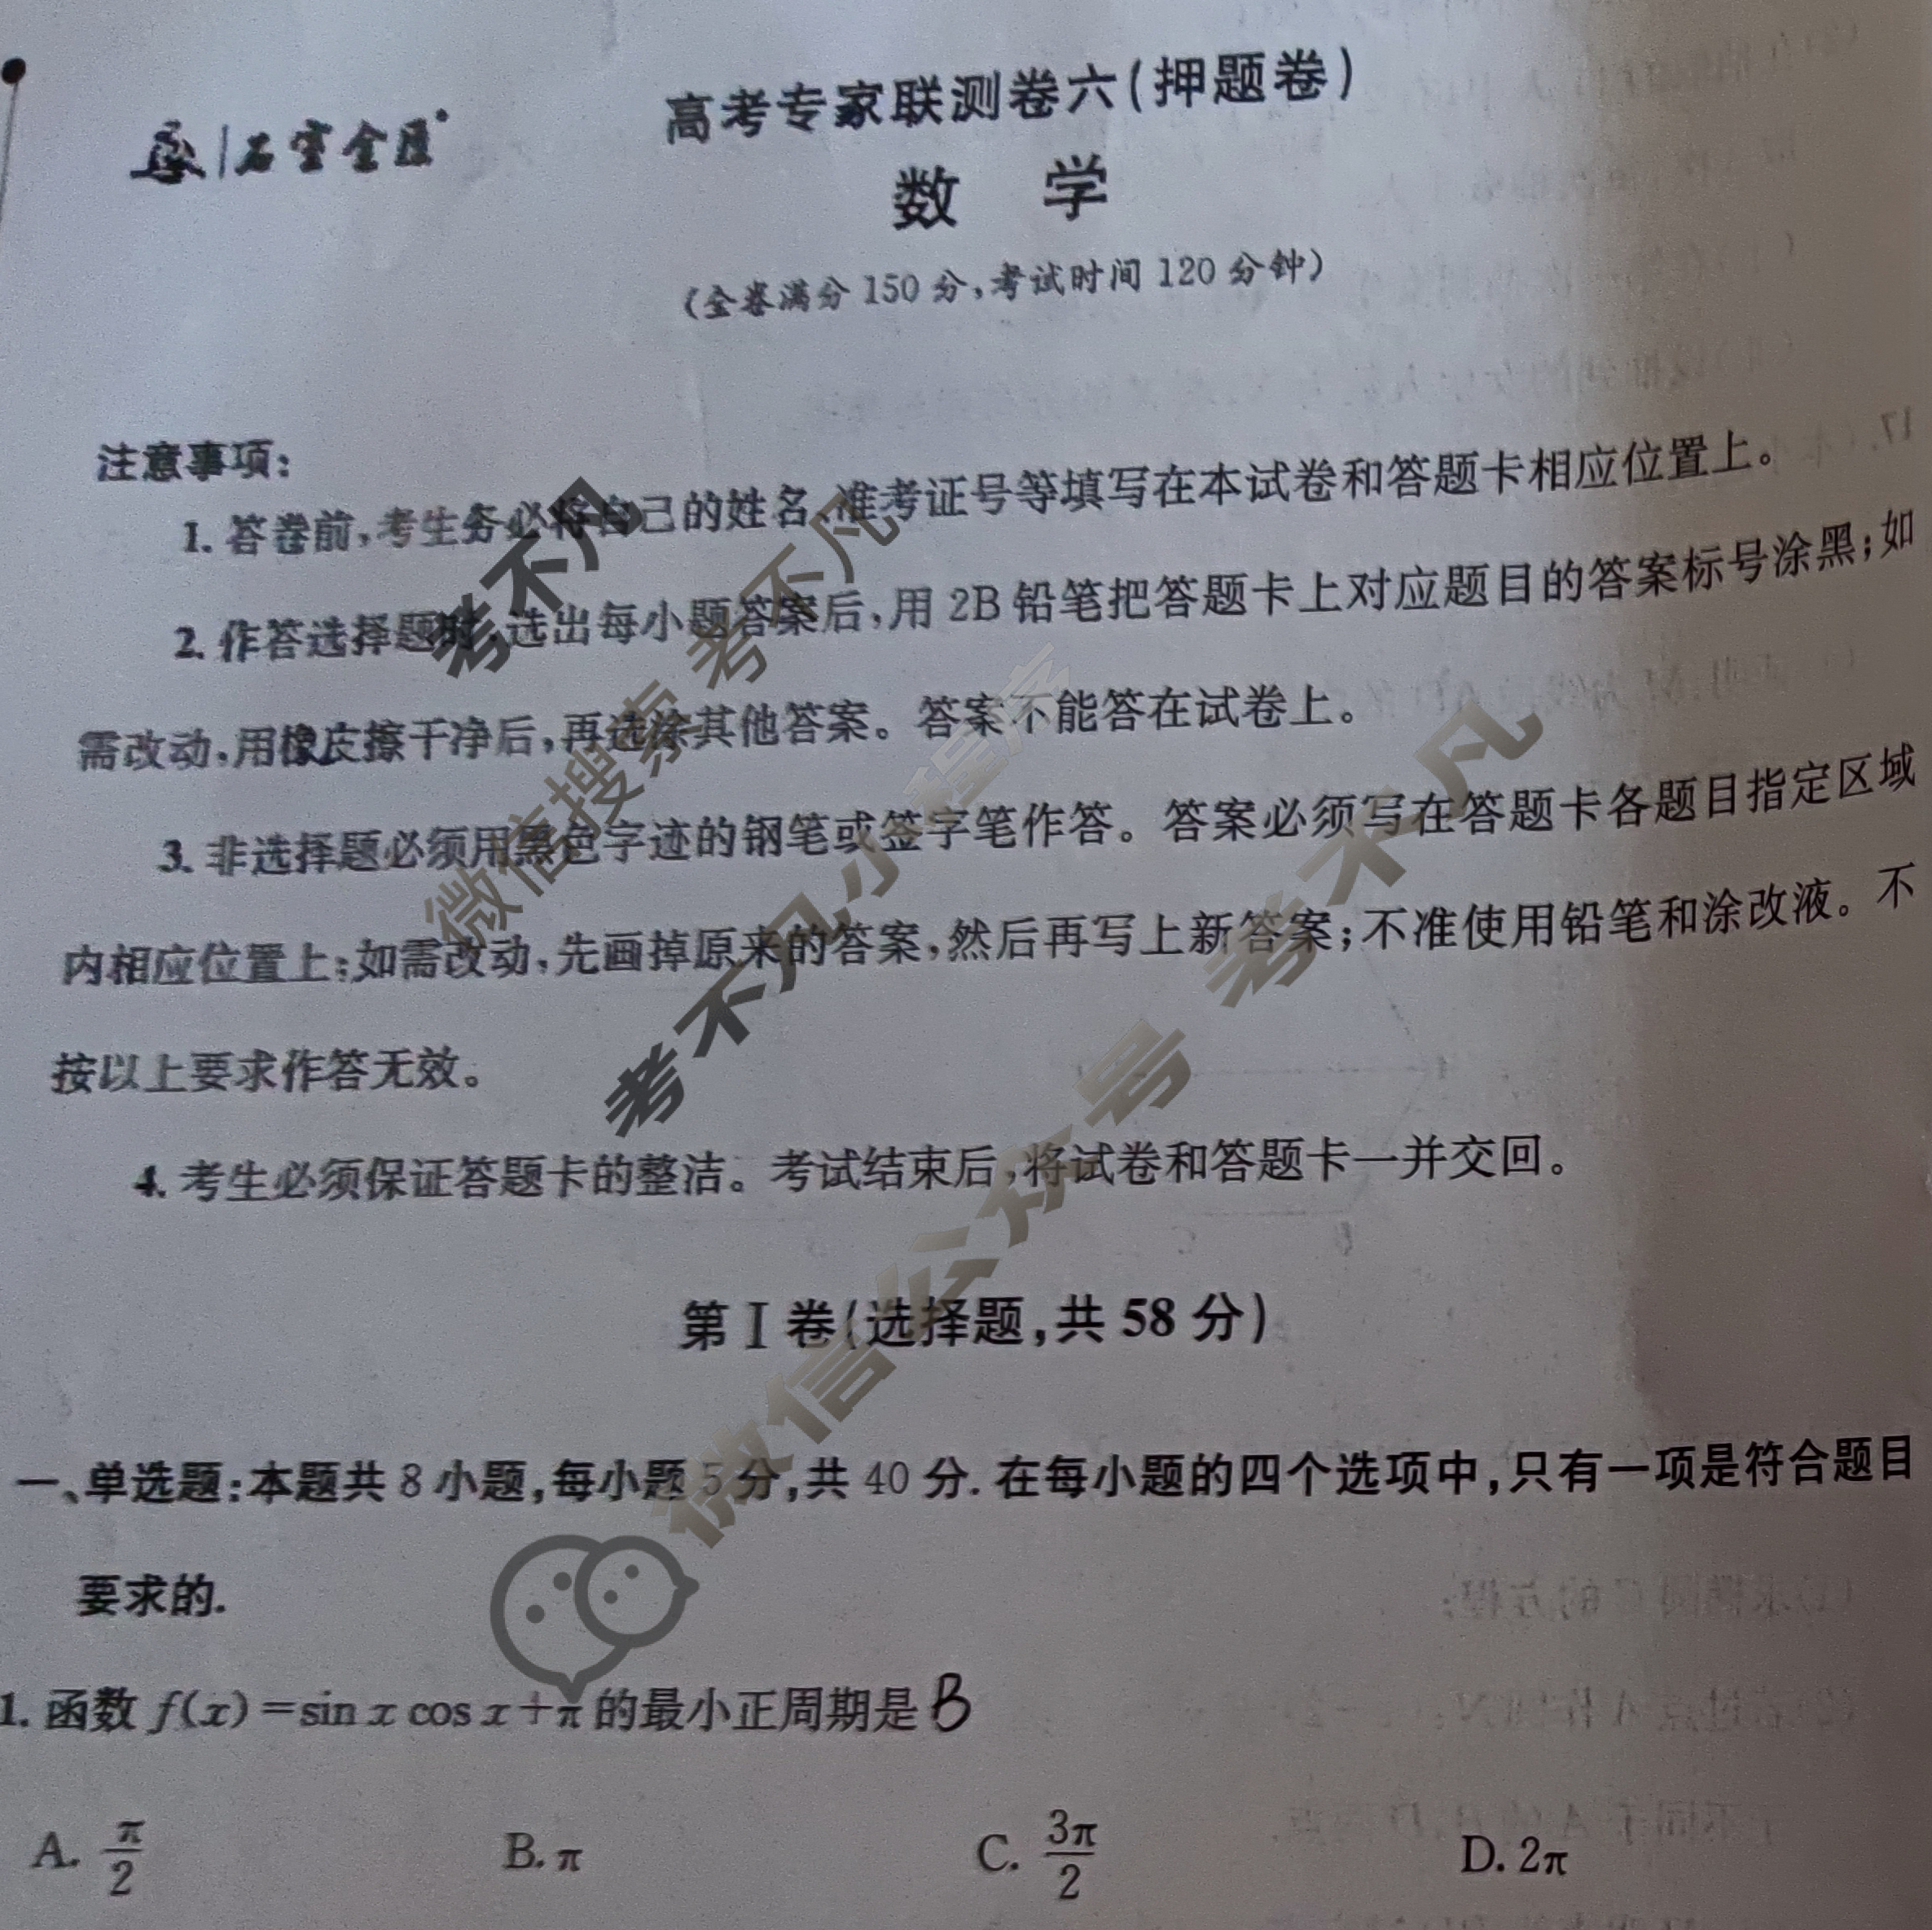 高考专家联测卷六(押题卷)
数 学
(全卷满分 150 分,考试时间 120 分钟)
注意事项:
1. 答卷前,考生务必将自己的姓名、准考证号等填写在本试卷和答题卡相应位置上。
2. 作答选择题时,选出每小题答案后,用 2B 铅笔把答题卡上对应题目的答案标号涂黑;如
需改动,用橡皮擦干净后,再选涂其他答案。答案不能答在试卷上。
3. 非选择题必须用黑色字迹的钢笔或签字笔作答。答案必须写在答题卡各题目指定区域
内相应位置上;如需改动,先画掉原来的答案,然后再写上新答案;不准使用铅笔和涂改液。不
按以上要求作答无效。
4. 考生必须保证答题卡的整洁。考试结束后,将试卷和答题卡一并交回。
第 I 卷(选择题,共 58 分)
一、单选题:本题共 8 小题,每小题 5 分,共 40 分. 在每小题的四个选项中,只有一项是符合题目
要求的.
1. 函数 f(x)=sin x cos x+π 的最小正周期是 B
A. π/2 B. π C. 3π/2 D. 2π
考不凡
微信搜索 考不凡
考不凡小程序
微信公众号 考不凡